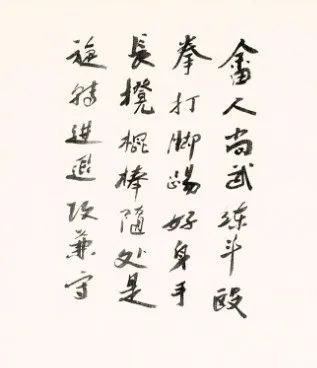 畲人尚武练斗殴
拳打脚踢好身手
長櫈棒隨处是
旋转進退攻兼守